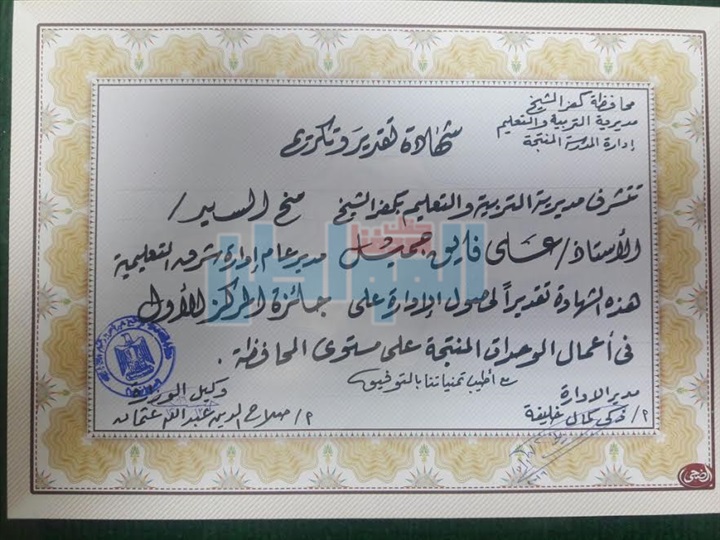 محافظة كفر الشيخ
مديرية التربية والتعليم
إدارة المدرسة المنتجة
شهادة تقدير وتكريم
تتشرف مديرية التربية والتعليم بكفر الشيخ منح السيد/
الأستاذ/ على فايق جميل مدير عام إدارة شرق التعليمية
هذه الشهادة تقديراً لحصول الإدارة على جائزة المركز الأول
فى أعمال الوحدات المنتجة على مستوى المحافظة .
مع أطيب تمنياتنا بالتوفيق
مدير الادارة
م/ زكى كمال خليفة
وكيل الوزارة
م/ صلاح الدين عبد الله عثمان
الضحى